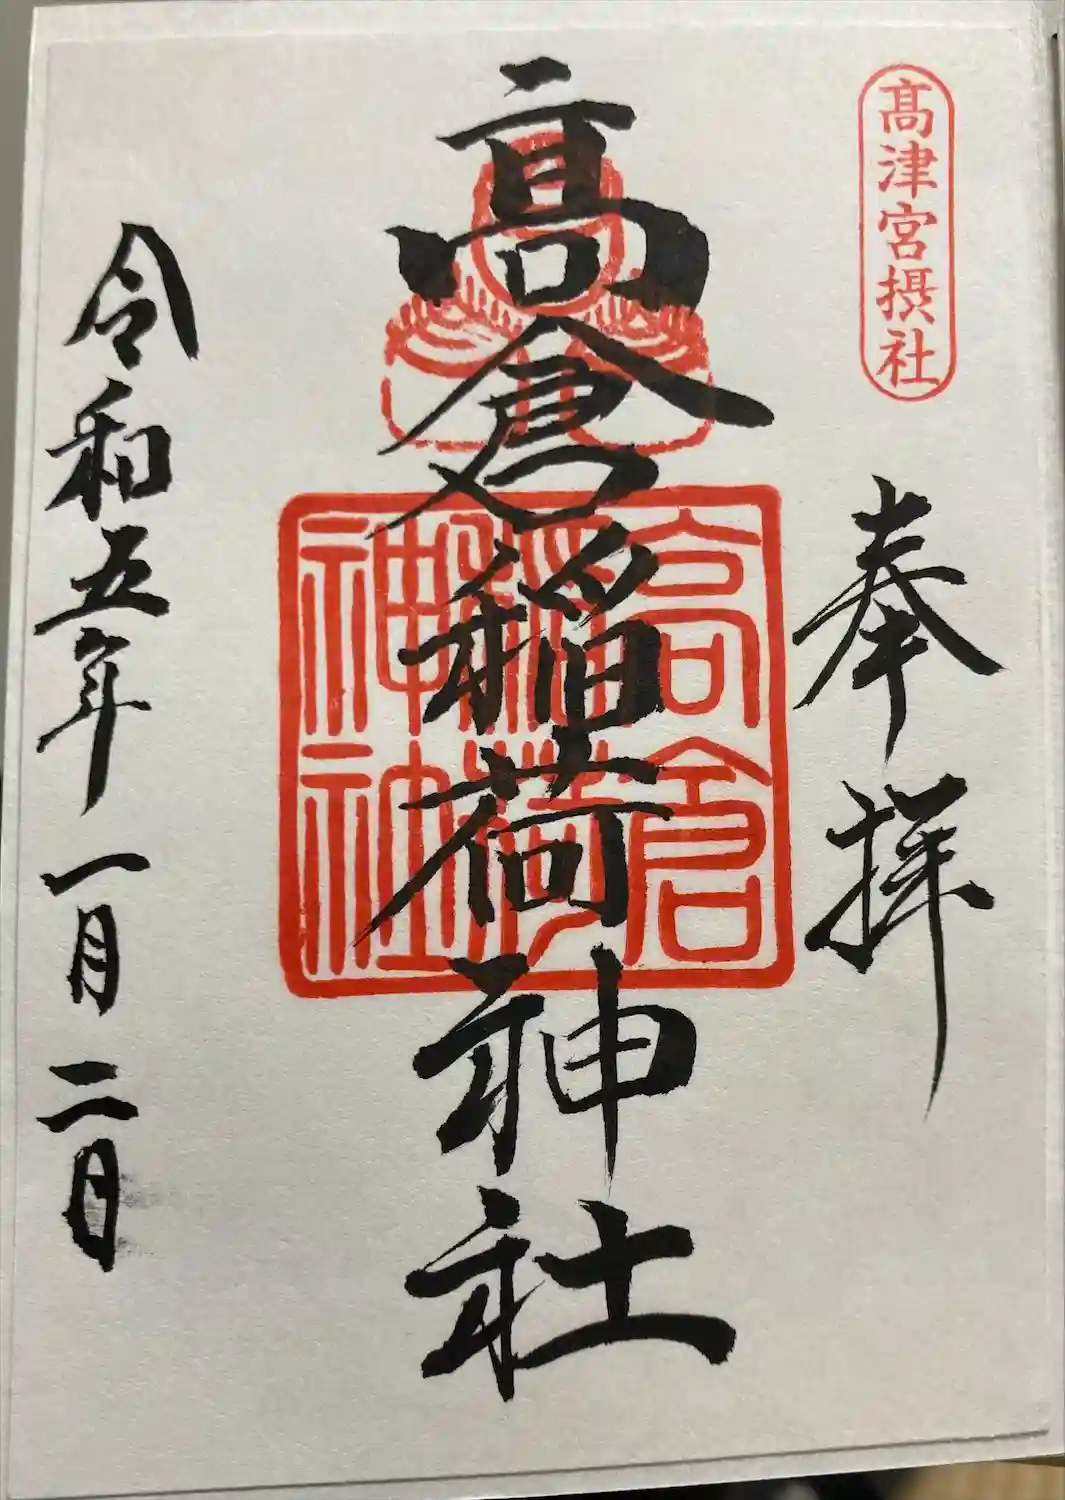 髙津宮摂社
奉拝
高倉稲荷神社
高倉
稲荷
神社
令和五年一月二日